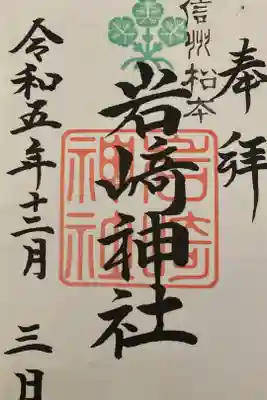 奉拝
信州松本
岩﨑神社
岩崎神社
令和五年十二月三日